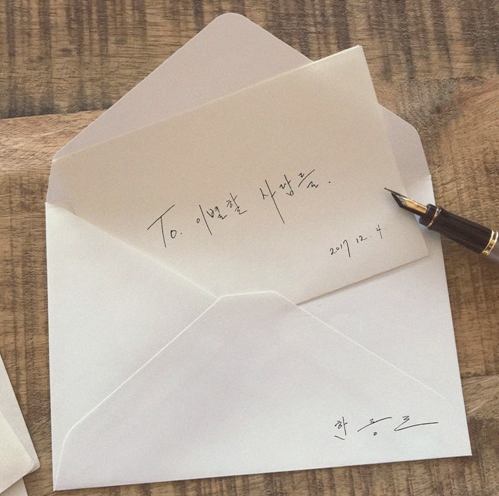 To. 이별할 사람들.
2017. 12. 4
한 릉 르